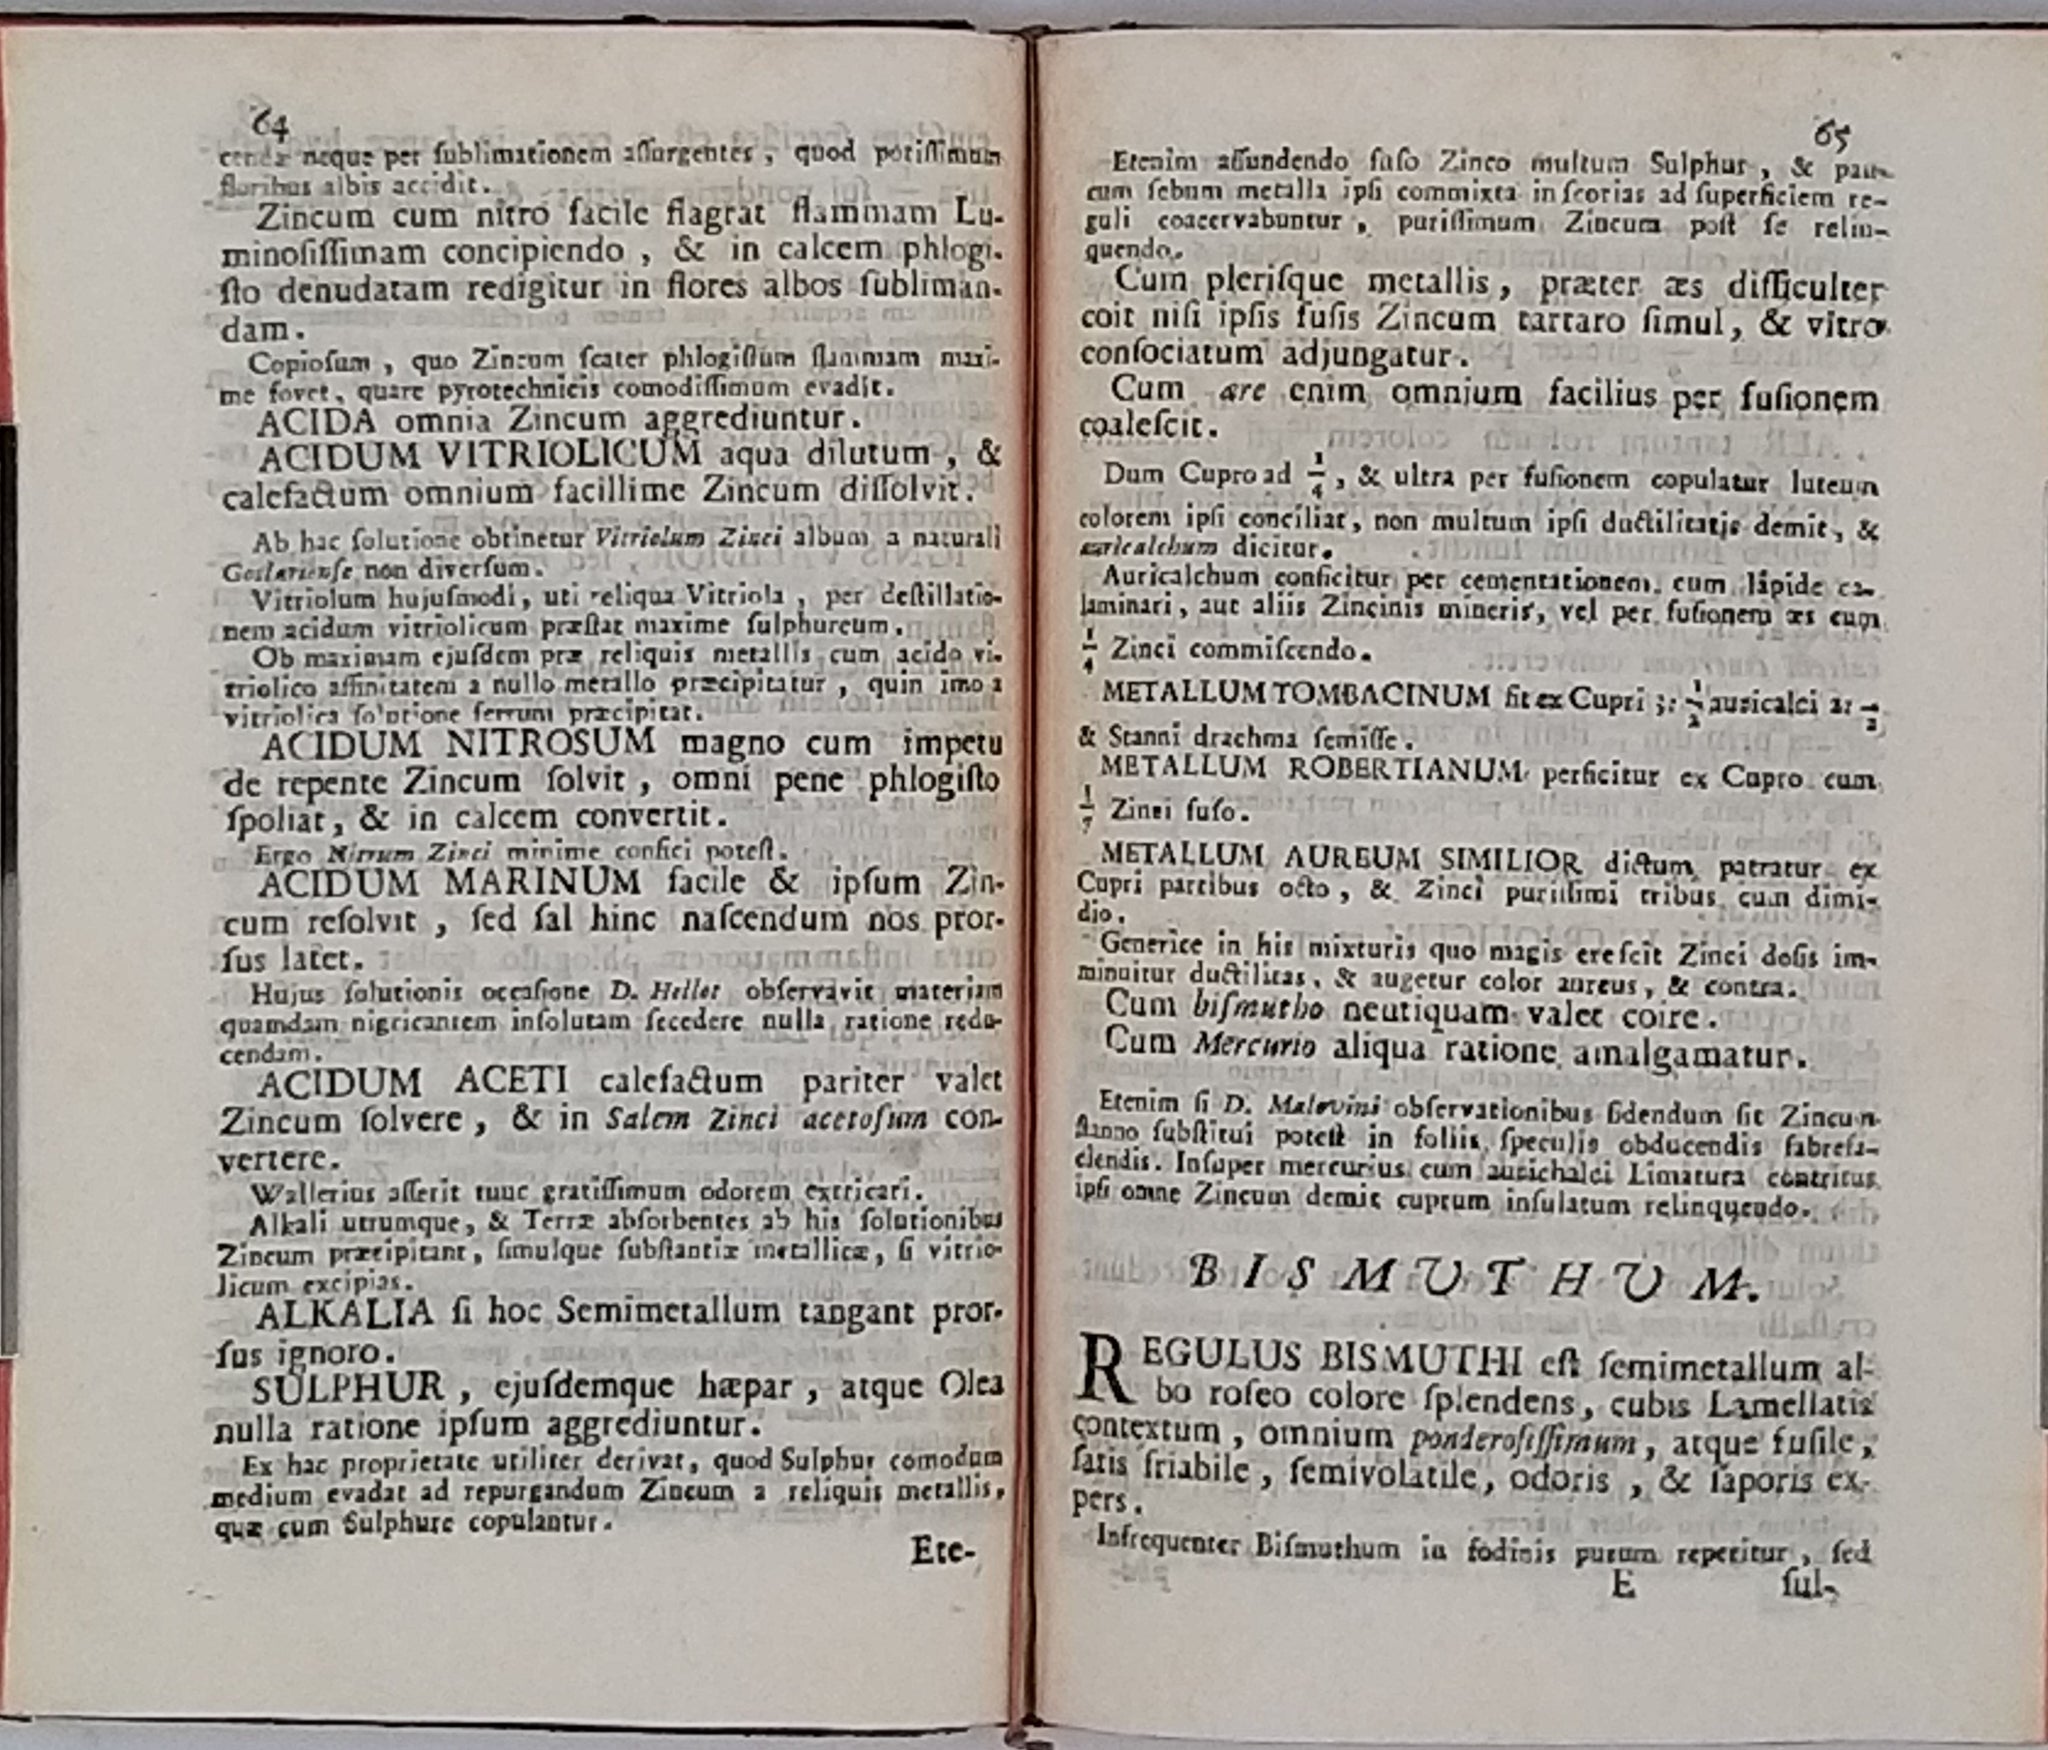 64
cendæ neque per ſublimationem aſſurgentes, quod potiſſimum
floribus albis accidit.
Zincum cum nitro facile flagrat flammam Lu-
minoſiſſimam concipiendo, & in calcem phlogi-
ſto denudatam redigitur in flores albos ſubliman-
dam.
Copioſum, quo Zincum ſcatet phlogiſtum flammam maxi-
me fovet, quare pyrotechnicis comodiſſimum evadit.
ACIDA omnia Zincum aggrediuntur.
ACIDUM VITRIOLICUM aqua dilutum, &
calefactum omnium facillime Zincum diſſolvit.
Ab hac ſolutione obtinetur Vitriolum Zinci album a naturali
Goslarienſe non diverſum.
Vitriolum hujuſmodi, uti reliqua Vitriola, per deſtillatio-
nem acidum vitriolicum præſtat maxime ſulphureum.
Ob maximam ejuſdem præ reliquis metallis cum acido vi-
triolico affinitatem a nullo metallo præcipitatur, quin imo a
vitriolica ſolutione ferrum præcipitat.
ACIDUM NITROSUM magno cum impetu
de repente Zincum ſolvit, omni pene phlogiſto
ſpoliat, & in calcem convertit.
Ergo Nitrum Zinci minime confici poteſt.
ACIDUM MARINUM facile & ipſum Zin-
cum reſolvit, ſed ſal hinc naſcendum nos pror-
ſus latet.
Hujus ſolutionis occaſione D. Hellot obſervavit materiam
quamdam nigricantem inſolutam ſecedere nulla ratione redu-
cendam.
ACIDUM ACETI calefactum pariter valet
Zincum ſolvere, & in Salem Zinci acetoſum con-
vertere.
Wallerius aſſerit tunc gratiſſimum odorem extricari.
Alkali utrumque, & Terræ abſorbentes ab his ſolutionibus
Zincum præcipitant, ſimulque ſubſtantiæ metallicæ, ſi vitrio-
licum excipias.
ALKALIA ſi hoc Semimetallum tangant pror-
ſus ignoro.
SULPHUR, ejuſdemque hæpar, atque Olea
nulla ratione ipſum aggrediuntur.
Ex hac proprietate utiliter derivat, quod Sulphur comodum
medium evadat ad repurgandum Zincum a reliquis metallis,
quæ cum Sulphure copulantur.
Ete-
65
Etenim affundendo fuſo Zinco multum Sulphur, & pau-
cum ſebum metalla ipſi commixta in ſcorias ad ſuperficiem re-
guli coacervabuntur, puriſſimum Zincum poſt ſe relin-
quendo.
Cum pleriſque metallis, præter æs difficulter
coit niſi ipſis fuſis Zincum tartaro ſimul, & vitro
conſociatum adjungatur.
Cum ære enim omnium facilius per fuſionem
coaleſcit.
Dum Cupro ad 1/4, & ultra per fuſionem copulatur luteum
colorem ipſi conciliat, non multum ipſi ductilitatis demit, &
auricalchum dicitur.
Auricalchum conficitur per cementationem cum lapide ca-
laminari, aut aliis Zincinis mineris, vel per fuſionem æs cum
1/4 Zinci commiſcendo.
METALLUM TOMBACINUM fit ex Cupri 3: 1/2 auricalci 2: 1/2
& Stanni drachma ſemiſſe.
METALLUM ROBERTIANUM perficitur ex Cupro cum
1/7 Zinci fuſo.
METALLUM AUREUM SIMILIOR dictum patratur ex
Cupri partibus octo, & Zinci puriſſimi tribus cum dimi-
dio.
Generice in his mixturis quo magis creſcit Zinci doſis im-
minuitur ductilitas, & augetur color aureus, & contra.
Cum biſmutho neutiquam valet coire.
Cum Mercurio aliqua ratione amalgamatur.
Etenim ſi D. Malovini obſervationibus fidendum ſit Zincum
ſtanno ſubſtitui poteſt in foliis ſpeculis obducendis fabrefa-
ciendis. Inſuper mercurius cum aurichalci Limatura contritus
ipſi omne Zincum demit cuprum inſulatum relinquendo.
BISMUTHUM.
REGULUS BISMUTHI eſt ſemimetallum al-
bo roſeo colore ſplendens, cubis Lamellatis
contextum, omnium ponderoſiſſimum, atque fuſile,
ſatis friabile, ſemivolatile, odoris, & ſaporis ex-
pers.
Infrequenter Biſmuthum in fodinis purum reperitur, ſed
E ſul-